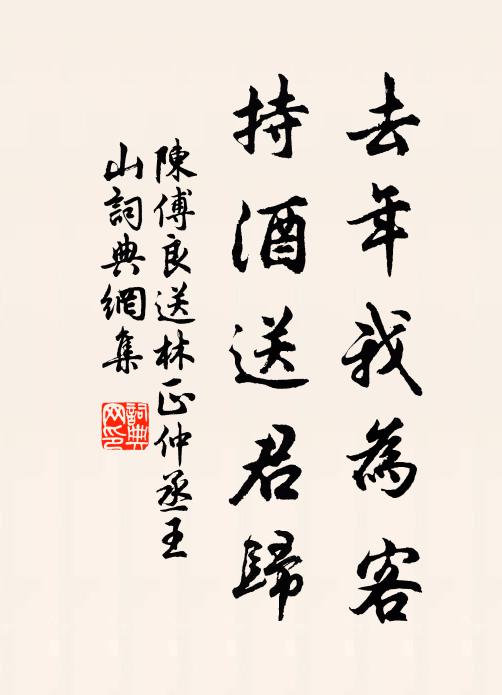 去年我為客
持酒送君歸
陳傅良送林正仲丞王
山詞典網集
詞典
网印